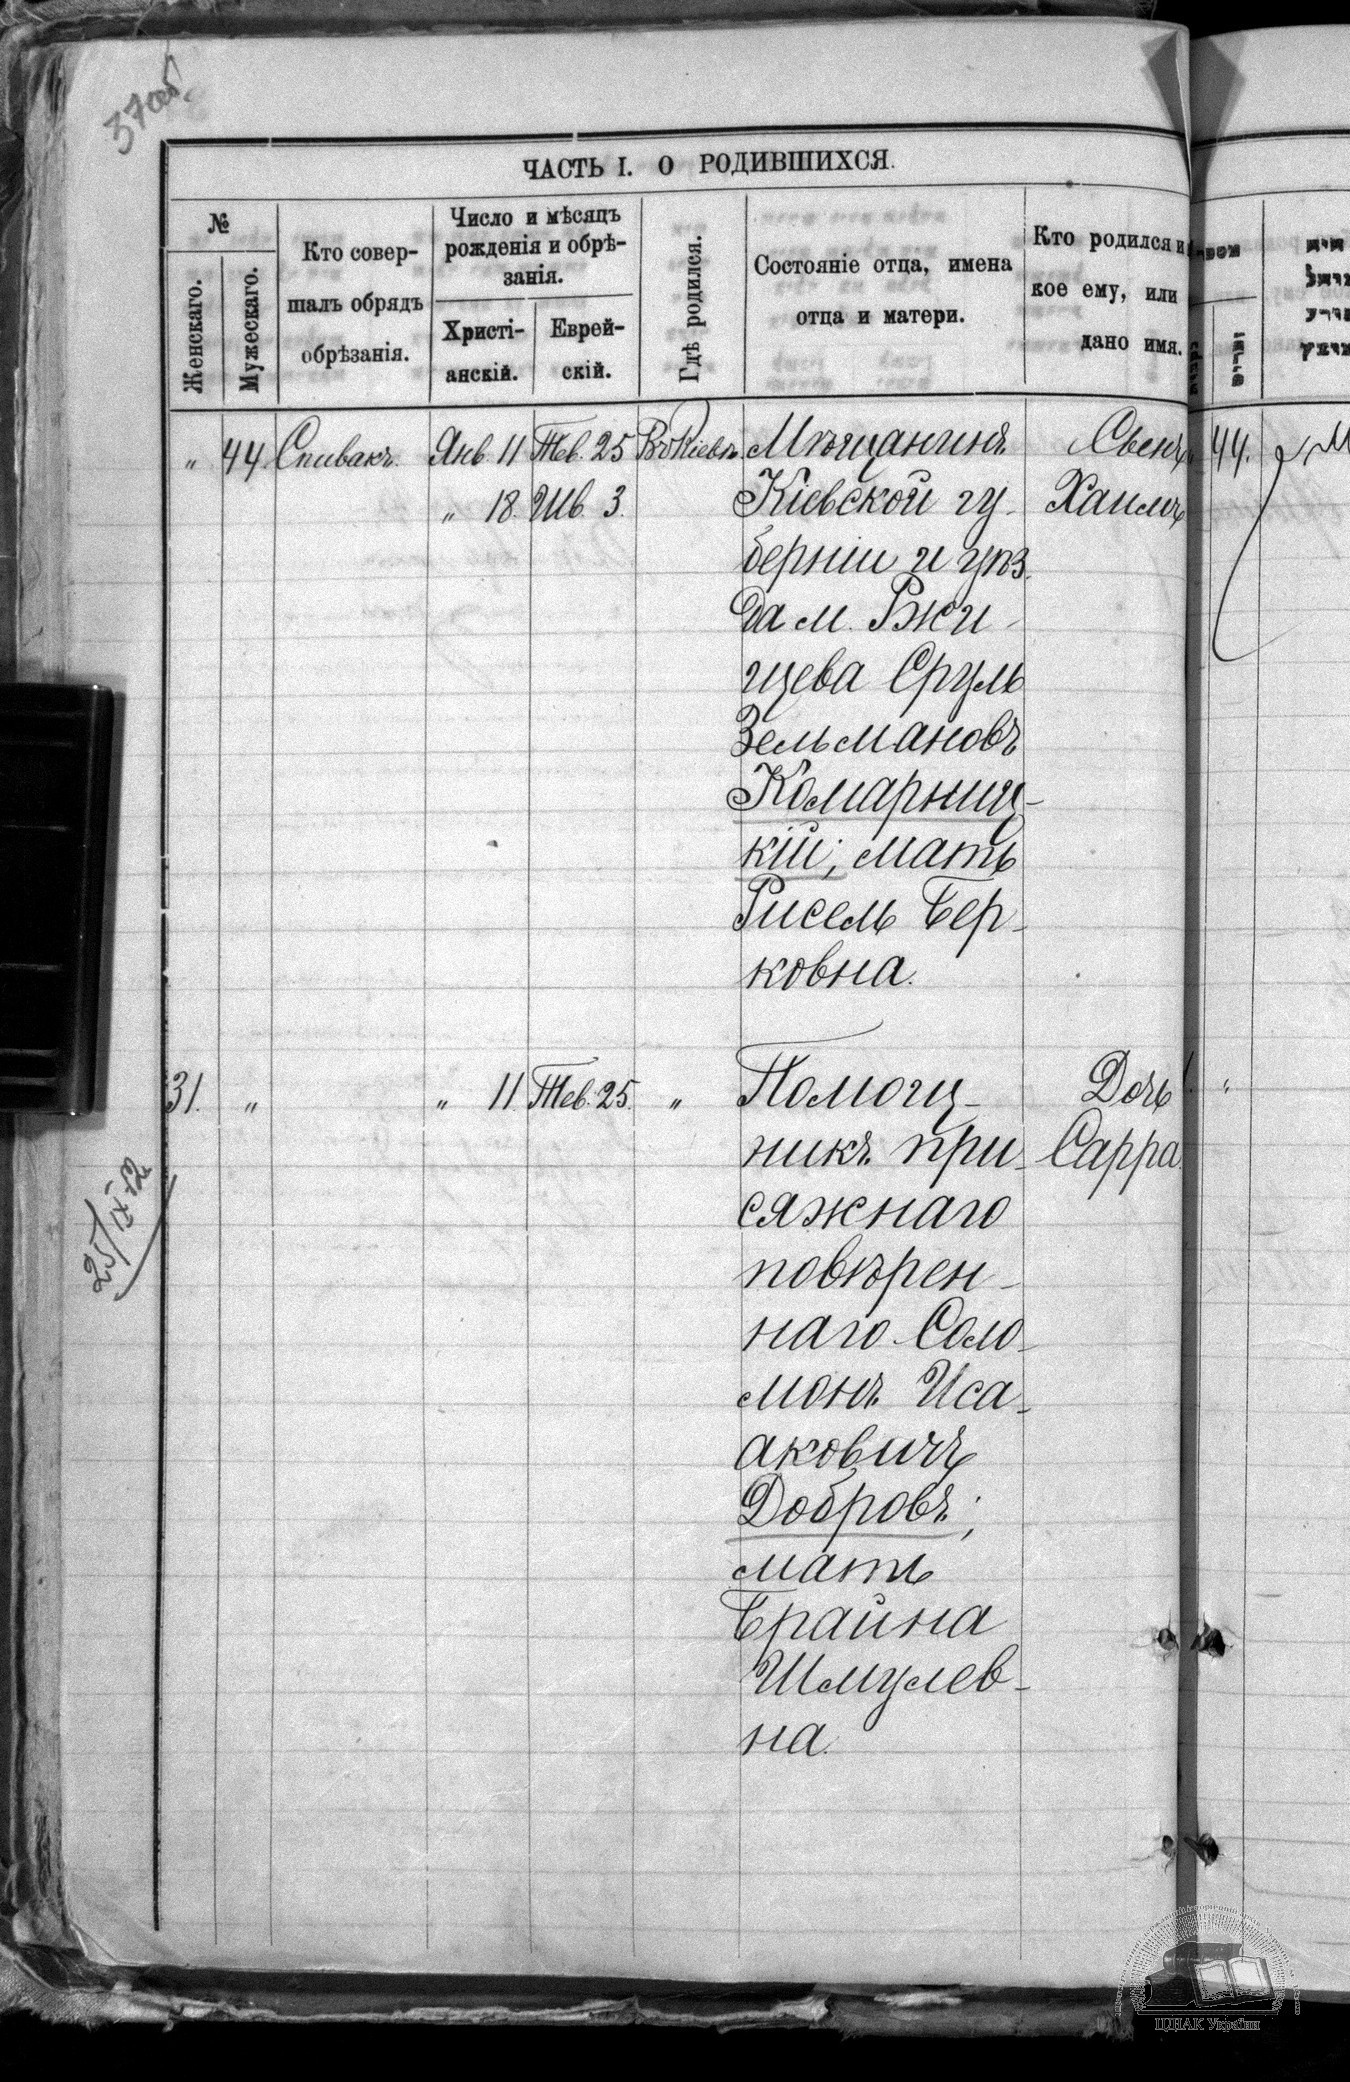 37 об.
ЧАСТЬ I. О РОДИВШИХСЯ.
№
Женскаго.
Мужескаго.
Кто совер-
шалъ обрядъ
обрѣзанія.
Число и мѣсяцъ
рожденія и обрѣ-
занія.
Христі-
анскій.
Еврей-
скій.
Гдѣ родился.
Состояніе отца, имена
отца и матери.
Кто родился и
кое ему, или
дано имя.
„ 44 Спивакъ. Янв. 11 Тев. 25 Въ Кіевѣ Мѣщанинъ Сынъ 44.
„ 18. Шв. 3. Кіевской гу- Хаимъ
берніи и уѣз.
да м. Ржи-
щева Сруль
Зельмановъ
Комарниц-
кій; мать
Рисель Бер-
ковна.
31. „ „ 11 Тев. 25. „ Помощ- Дочь „
никъ при- Сарра.
сяжнаго
повѣрен-
наго Соло-
монъ Иса-
аковичъ
Добровъ;
мать
Брайна
Шмулев-
на.
25/IX 72
ЦДІАК України